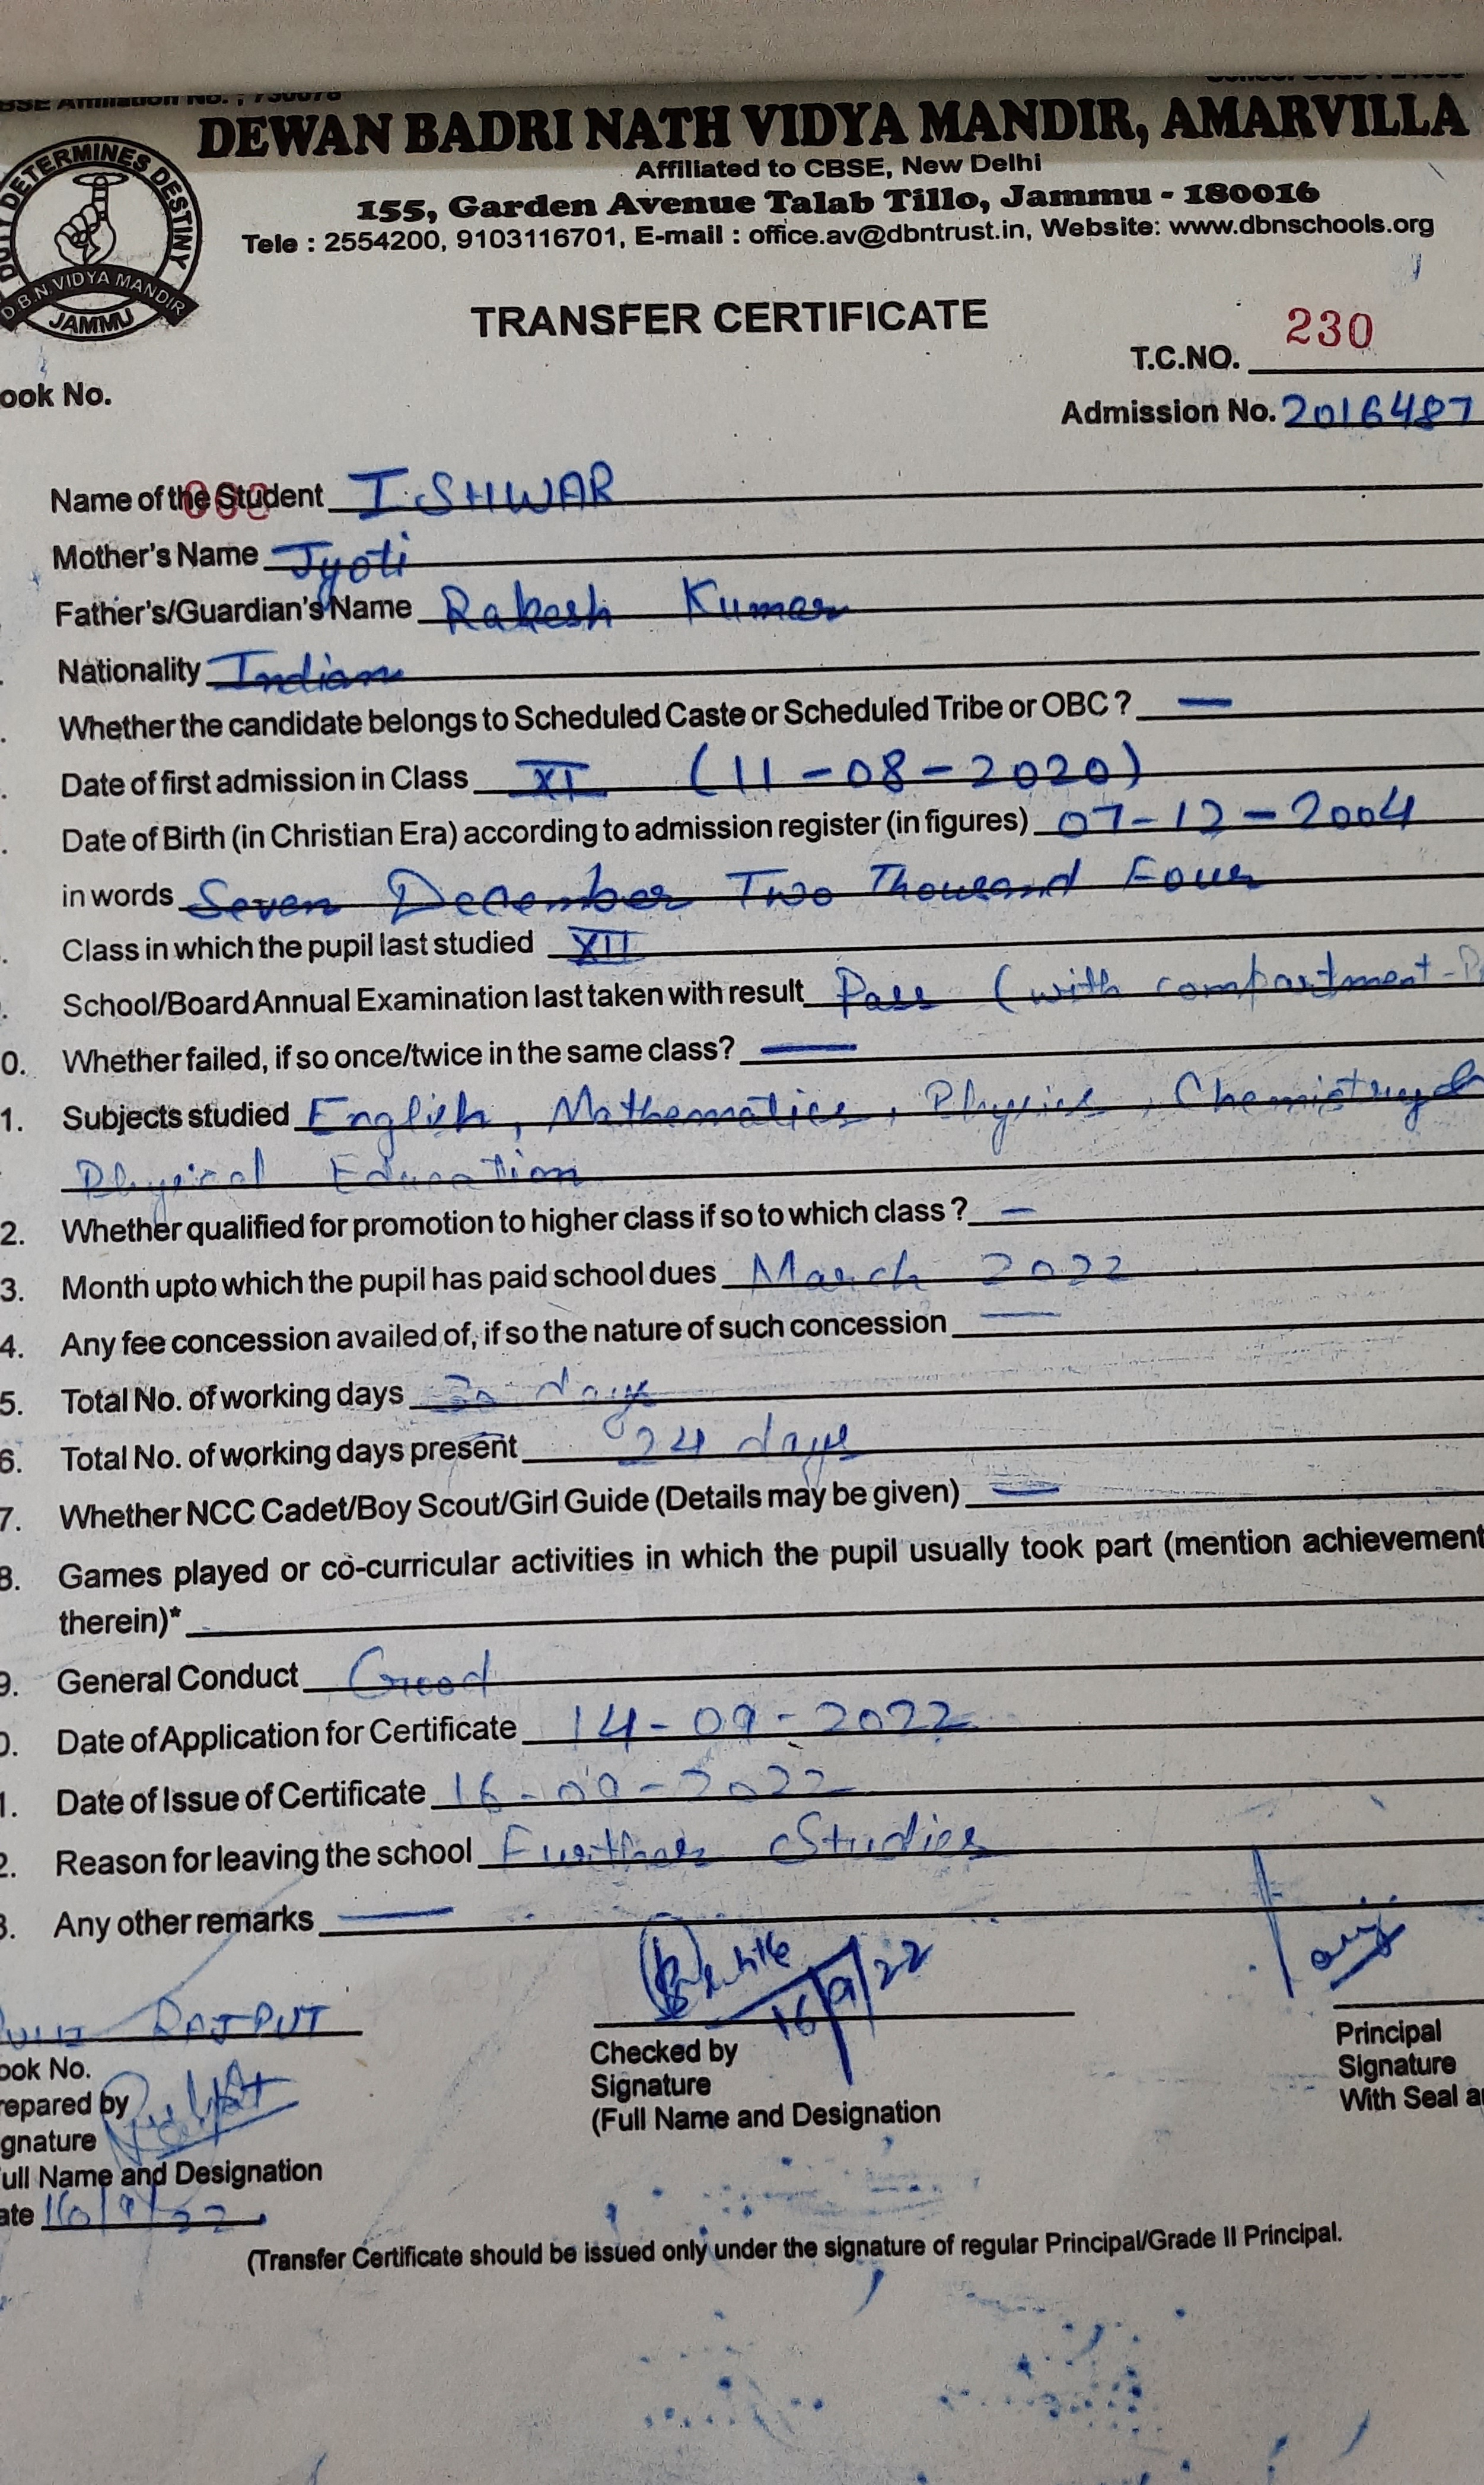 BSE Affiliation No. : 730078
DEWAN BADRI NATH VIDYA MANDIR, AMARVILLA
Affiliated to CBSE, New Delhi
155, Garden Avenue Talab Tillo, Jammu - 180016
Tele : 2554200, 9103116701, E-mail : office.av@dbntrust.in, Website: www.dbnschools.org
DUTY DETERMINES DESTINY
D.B.N. VIDYA MANDIR
JAMMU
TRANSFER CERTIFICATE
T.C.NO. 230
ook No.
Admission No. 2016487
Name of the Student ISHWAR
Mother's Name Jyoti
Father's/Guardian's Name Rakesh Kumar
Nationality Indian
Whether the candidate belongs to Scheduled Caste or Scheduled Tribe or OBC ? —
Date of first admission in Class XI (11-08-2020)
Date of Birth (in Christian Era) according to admission register (in figures) 07-12-2004
in words Seven December Two Thousand Four
Class in which the pupil last studied XII
School/Board Annual Examination last taken with result Pass (with compartment-P
0. Whether failed, if so once/twice in the same class? —
1. Subjects studied English, Mathematics, Physics, Chemistry &
Physical Education
2. Whether qualified for promotion to higher class if so to which class ? —
3. Month upto which the pupil has paid school dues March 2022
4. Any fee concession availed of, if so the nature of such concession —
5. Total No. of working days 30 days
6. Total No. of working days present 24 days
7. Whether NCC Cadet/Boy Scout/Girl Guide (Details may be given) —
8. Games played or co-curricular activities in which the pupil usually took part (mention achievement
therein)*
9. General Conduct Good
0. Date of Application for Certificate 14-09-2022
1. Date of Issue of Certificate 16-09-2022
2. Reason for leaving the school Further Studies
3. Any other remarks —
RAJPUT
16/9/22
ook No.
repared by
gnature
ull Name and Designation
ate 16/9/22
Checked by
Signature
(Full Name and Designation
Principal
Signature
With Seal a
(Transfer Certificate should be issued only under the signature of regular Principal/Grade II Principal.